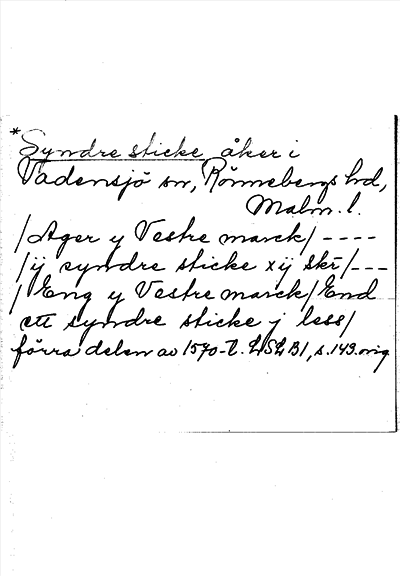 *Syndre sticke åker i
Vadensjö sn, Rönnebergs hd,
Malm. l.
/Ager y Vestre marck/ ----
/ij syndre sticke xij skr/---
/Eng y Vestre marck/End
ett syndre sticke j less/
förra delen av 1570-t. LSLB1, s.143.orig